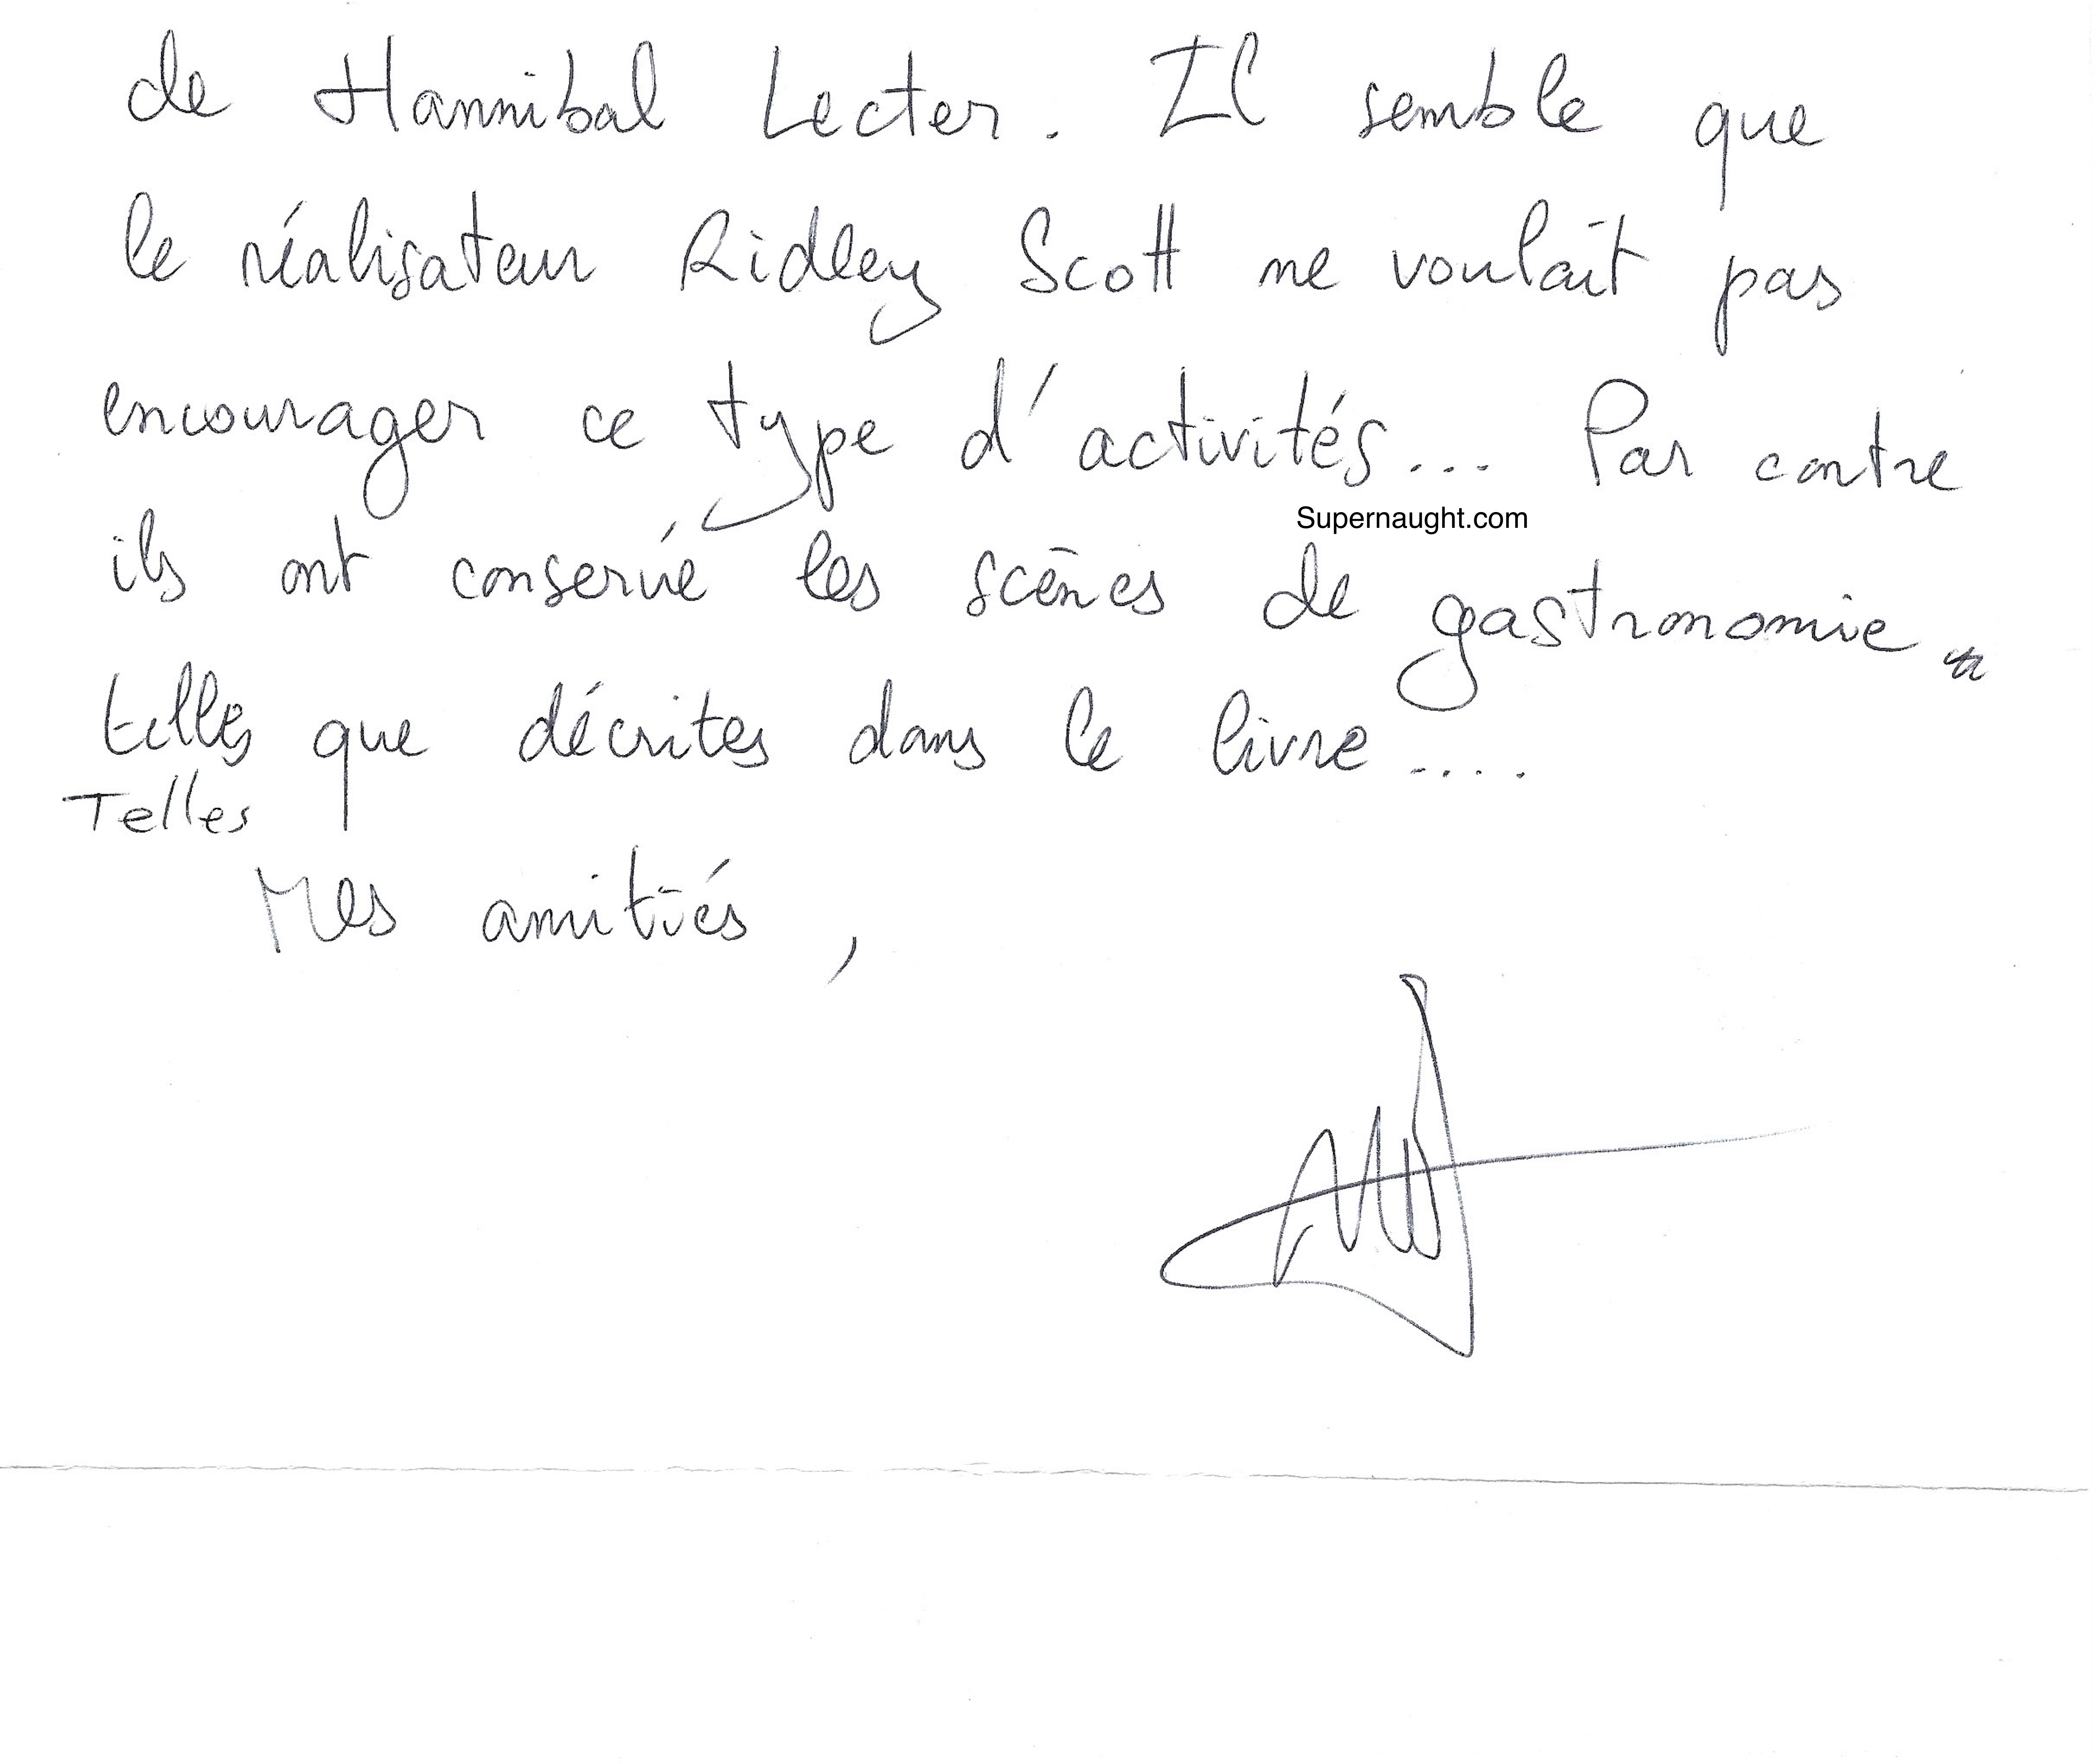 de Hannibal Lecter. Il semble que
le réalisateur Ridley Scott ne voulait pas
encourager ce type d'activités... Par contre
Supernaught.com
ils ont conservé les scènes de gastronomie
telles que décrites dans le livre ....
Telles
Mes amitiés,